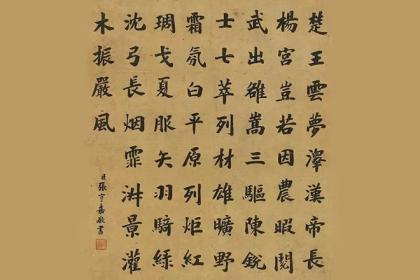 楚王雲夢澤漢帝長
楊宮豈若因農暇閱
武出雒嵩三驅陳銳
士七萃列材雄曠野
霜氛白平原列炬紅
琱戈夏服矢羽騎綠
沈弓長烟霏淋景灌
木振嚴風
張宇嘉敬書